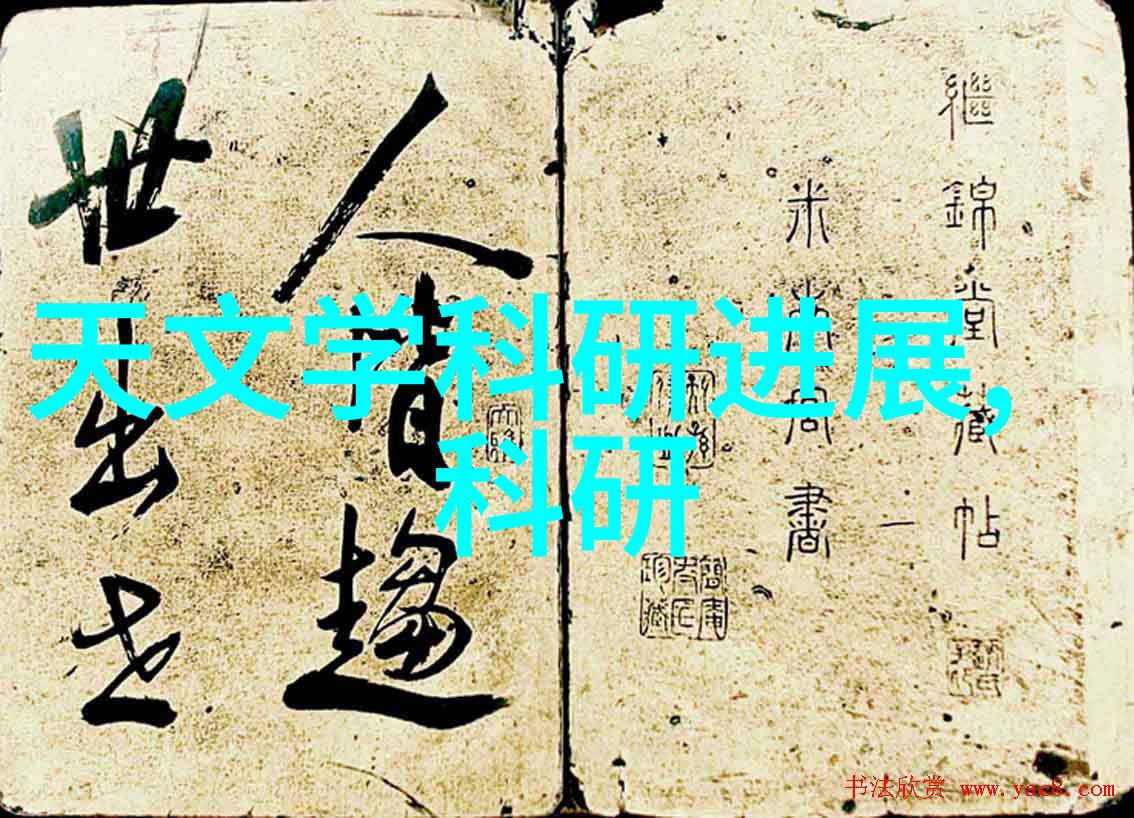 天文学科研进展,
科研
繼錦堂藏帖
米南宫書
人皆趨
世出世
书法欣赏 www.yac8.com